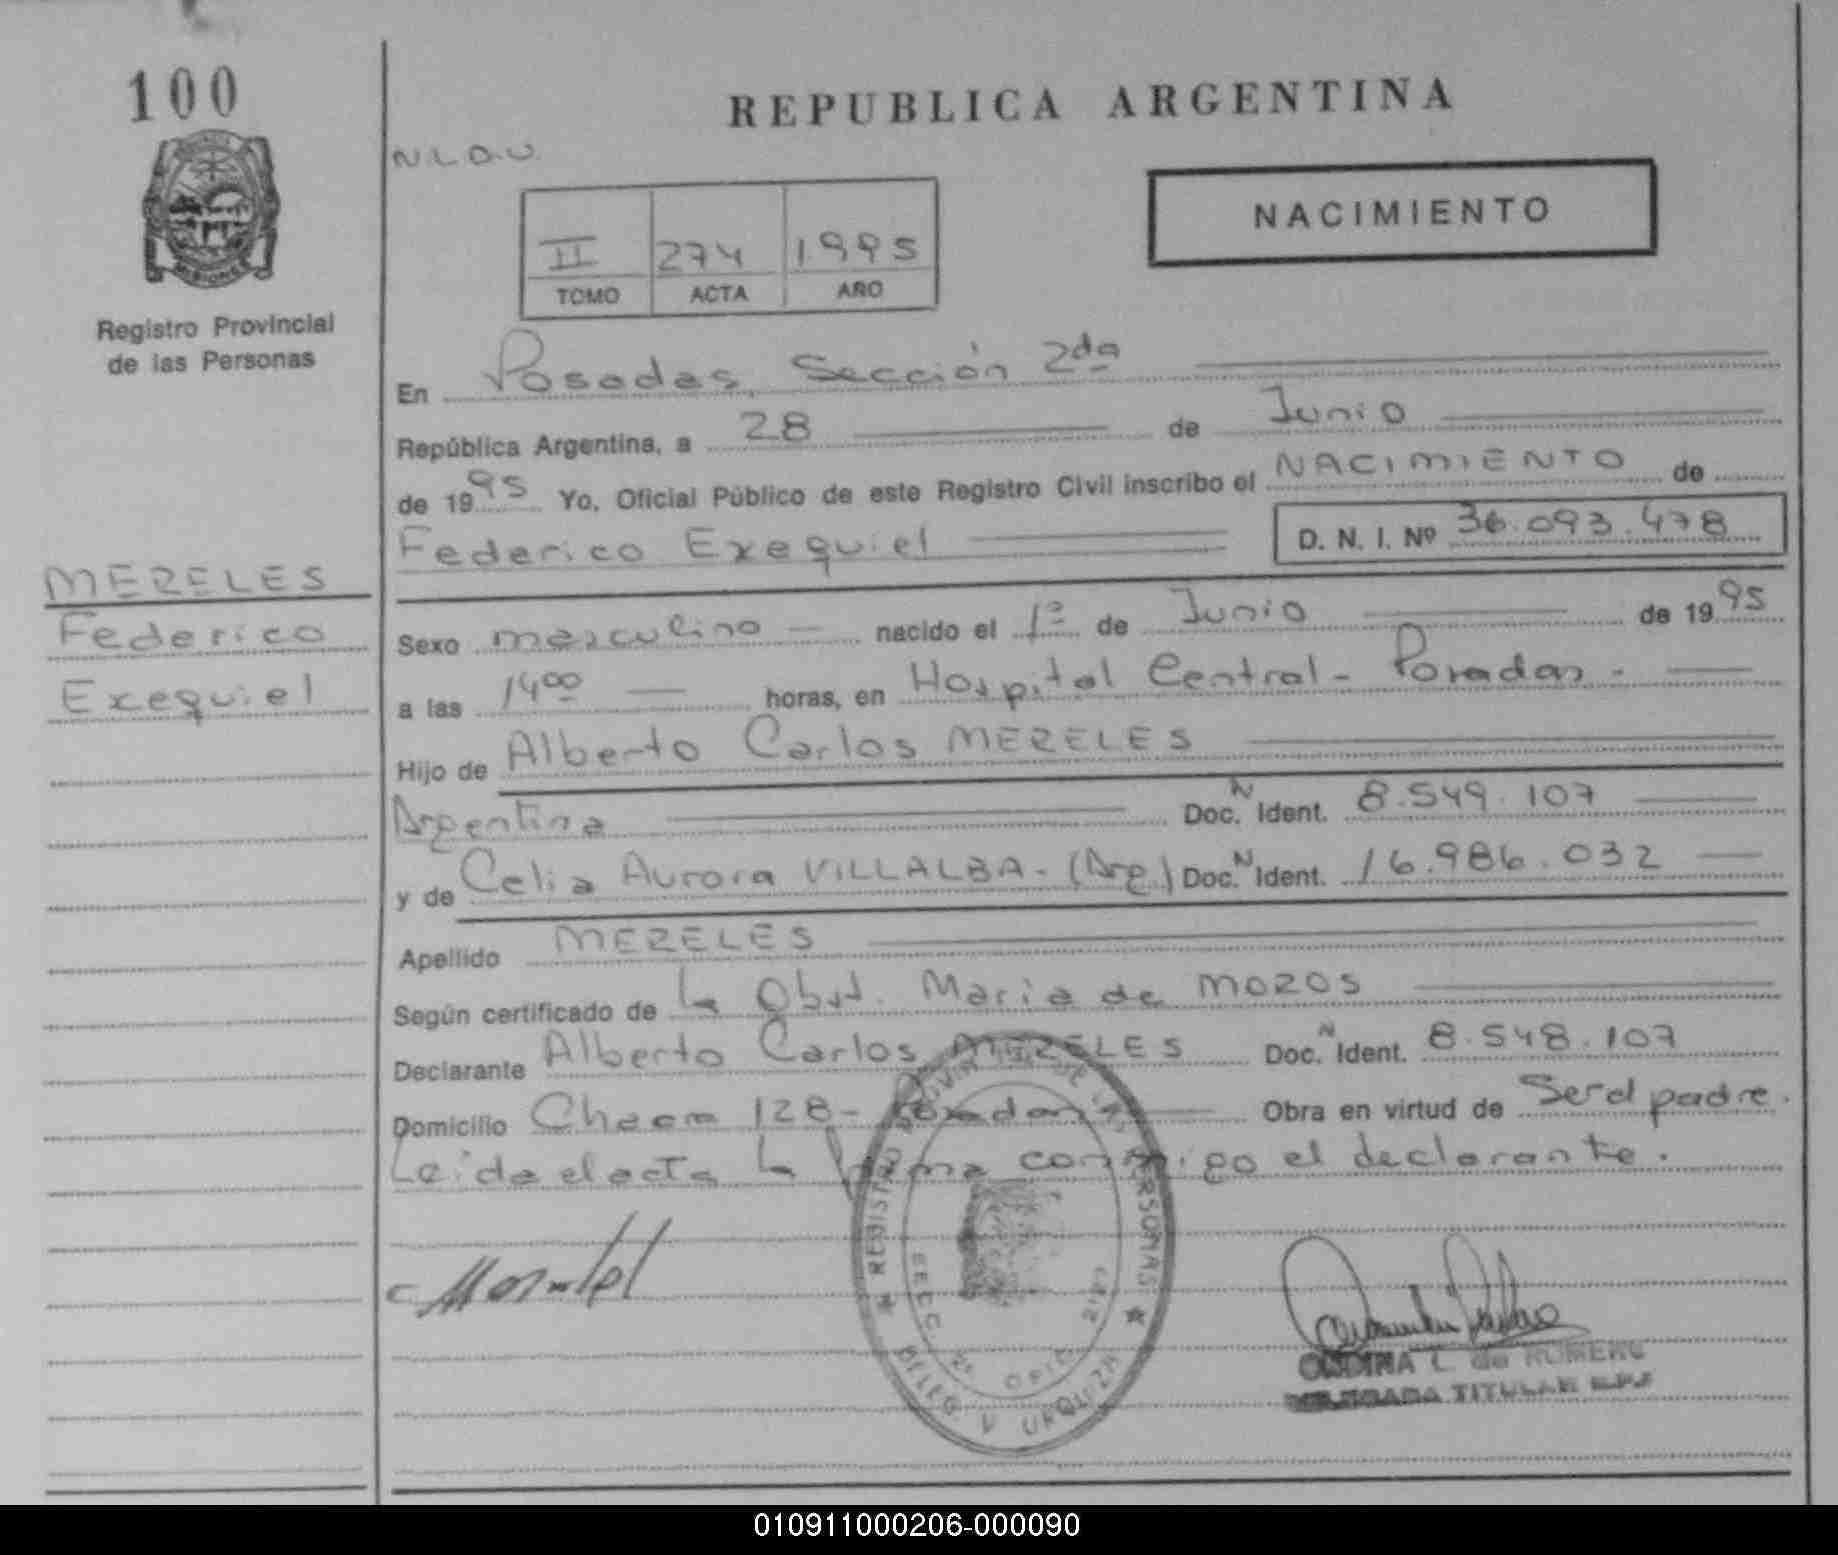 100
REPUBLICA ARGENTINA
N.L.O.U.
NACIMIENTO
II 274 1.995
TOMO ACTA AÑO
MISIONES
Registro Provincial
de las Personas
En Posadas, Sección 2da
República Argentina, a 28 de Junio
de 1995 Yo, Oficial Público de este Registro Civil inscribo el NACIMIENTO de
Federico Exequiel D. N. I. Nº 36.093.478
MEZELES
Federico
Exequiel
Sexo masculino nacido el 1º de Junio de 1995
a las 14⁰⁰ horas, en Hospital Central - Posadas -
Hijo de Alberto Carlos MEZELES
Argentina Doc. N Ident. 8.549.107
y de Celia Aurora VILLALBA - (Arg) Doc. N Ident. 16.986.032
Apellido MEZELES
Según certificado de la Obst. Maria de MOZOS
Declarante Alberto Carlos MEZELES Doc. N Ident. 8.548.107
Domicilio Chaco 128 - Posadas Obra en virtud de Ser el padre.
Leida el acta la firma conmigo el declarante.
REGISTRO PROVINCIAL DE LAS PERSONAS
DELEG. V. URQUIZA
ONDINA L. de ROMERO
DELEGADA TITULAR R.P.P.
010911000206-000090